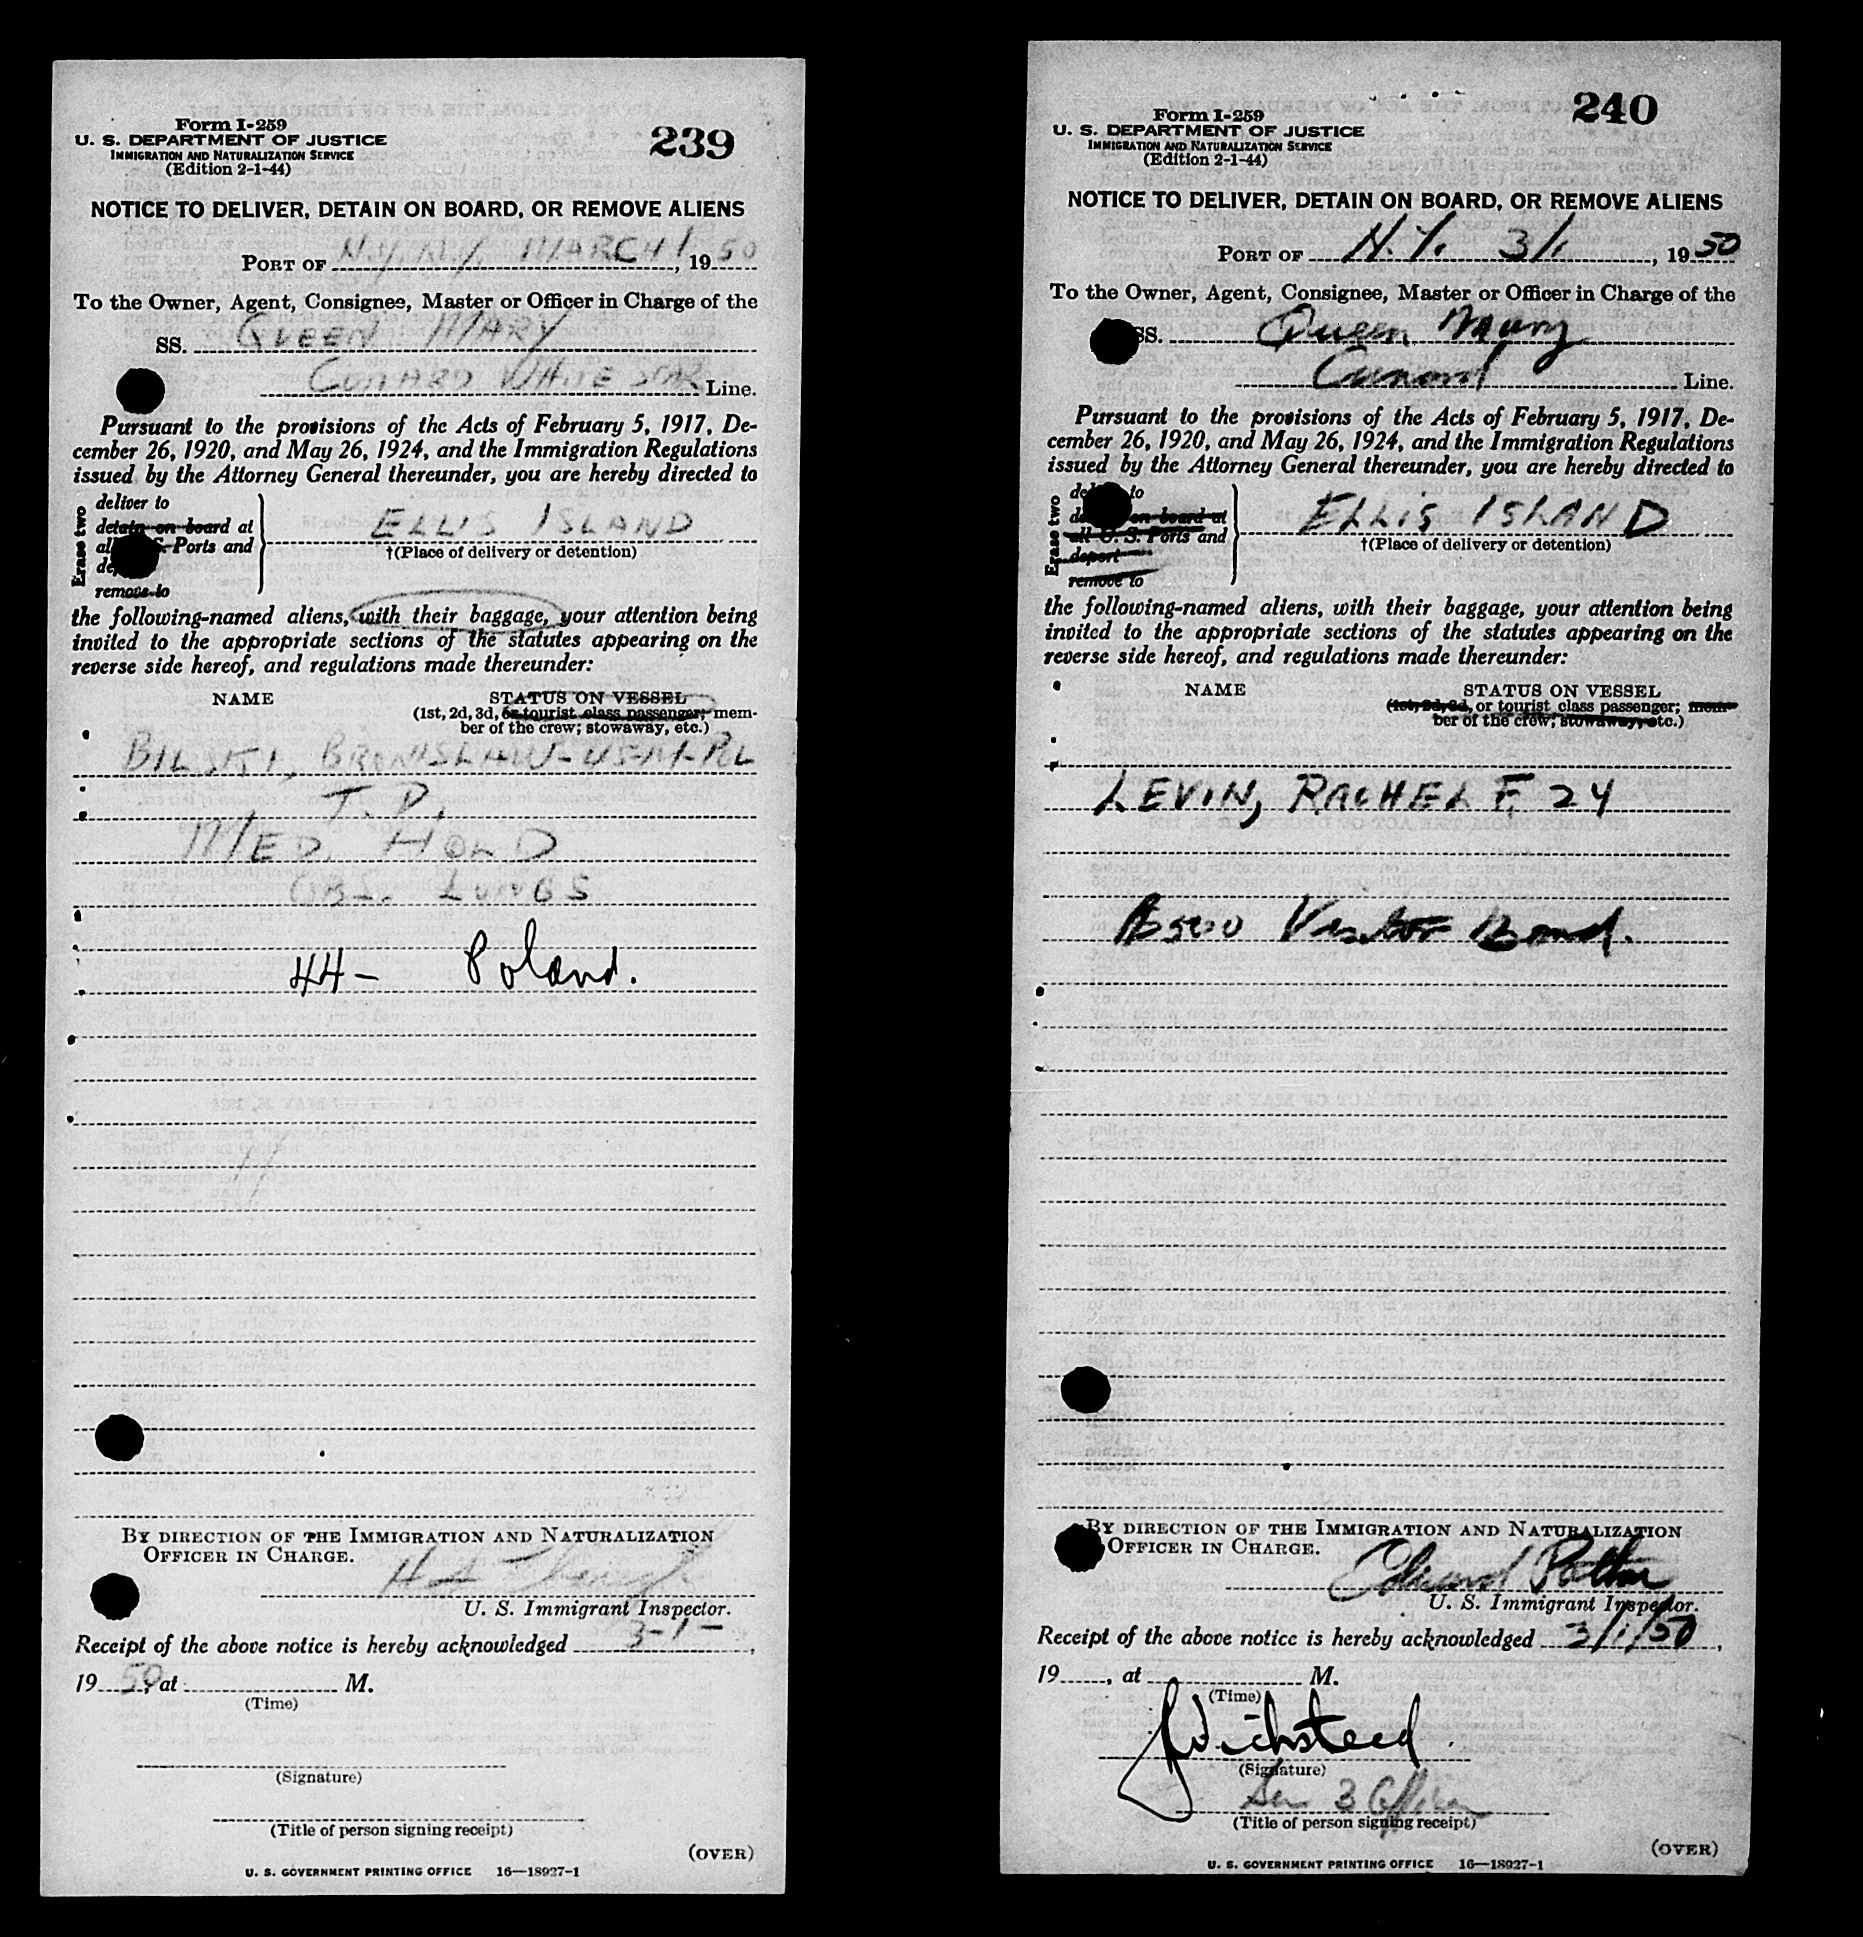 Form I-259
U. S. DEPARTMENT OF JUSTICE
IMMIGRATION AND NATURALIZATION SERVICE
(Edition 2-1-44)
239
NOTICE TO DELIVER, DETAIN ON BOARD, OR REMOVE ALIENS
PORT OF N.Y. N.Y. MARCH 1, 1950
To the Owner, Agent, Consignee, Master or Officer in Charge of the
SS. QUEEN MARY
WHITE STAR Line.
Pursuant to the provisions of the Acts of February 5, 1917, De-
cember 26, 1920, and May 26, 1924, and the Immigration Regulations
issued by the Attorney General thereunder, you are hereby directed to
Erase two
deliver to
detain on board at
all U. S. Ports and
remove to
ELLIS ISLAND
†(Place of delivery or detention)
the following-named aliens, with their baggage, your attention being
invited to the appropriate sections of the statutes appearing on the
reverse side hereof, and regulations made thereunder:
NAME STATUS ON VESSEL
(1st, 2d, 3d, or tourist class passenger; mem-
ber of the crew; stowaway, etc.)
BILSKI, BRONISLAW-45-M-POL
T. D.
MED. HOLD
OBS. LUNGS
44- Poland.
BY DIRECTION OF THE IMMIGRATION AND NATURALIZATION
OFFICER IN CHARGE.
U. S. Immigrant Inspector.
Receipt of the above notice is hereby acknowledged 3-1-,
1950, at M.
(Time)
(Signature)
(Title of person signing receipt)
(OVER)
U. S. GOVERNMENT PRINTING OFFICE 16—18927-1
Form I-259
U. S. DEPARTMENT OF JUSTICE
IMMIGRATION AND NATURALIZATION SERVICE
(Edition 2-1-44)
240
NOTICE TO DELIVER, DETAIN ON BOARD, OR REMOVE ALIENS
PORT OF N.Y. 3/1, 1950
To the Owner, Agent, Consignee, Master or Officer in Charge of the
SS. Queen Mary
Cunard Line.
Pursuant to the provisions of the Acts of February 5, 1917, De-
cember 26, 1920, and May 26, 1924, and the Immigration Regulations
issued by the Attorney General thereunder, you are hereby directed to
Erase two
to
on board at
all U. S. Ports and
deport
remove to
ELLIS ISLAND
†(Place of delivery or detention)
the following-named aliens, with their baggage, your attention being
invited to the appropriate sections of the statutes appearing on the
reverse side hereof, and regulations made thereunder:
NAME STATUS ON VESSEL
(1st, 2d, 3d, or tourist class passenger; mem-
ber of the crew; stowaway, etc.)
LEVIN, RACHEL F. 24
$500 Visitor Bond.
BY DIRECTION OF THE IMMIGRATION AND NATURALIZATION
OFFICER IN CHARGE.
Edmund
U. S. Immigrant Inspector.
Receipt of the above notice is hereby acknowledged 3/1/50,
19, at M.
(Time)
J Wichsteed
(Signature)
Sen 3 Officer
(Title of person signing receipt)
(OVER)
U. S. GOVERNMENT PRINTING OFFICE 16—18927-1